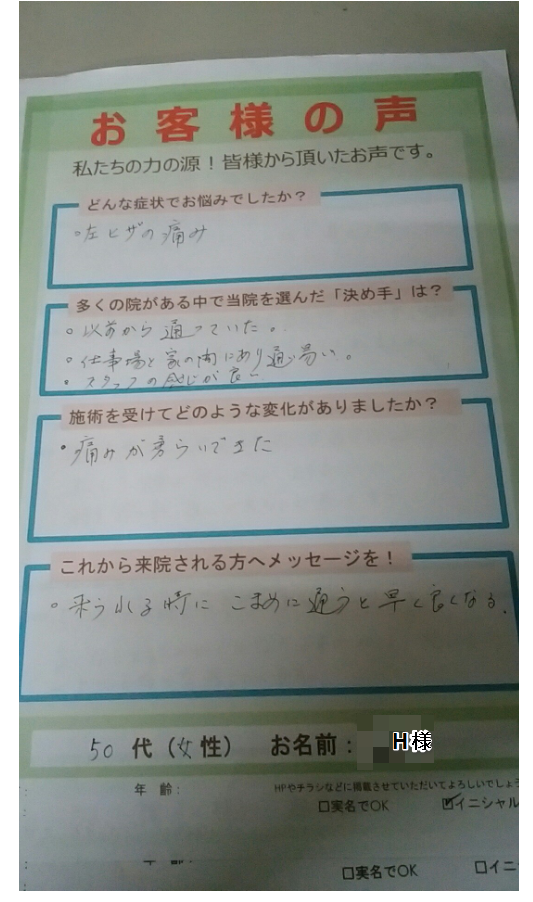 お客様の声
私たちの力の源！皆様から頂いたお声です。
どんな症状でお悩みでしたか？
・左ヒザの痛み
多くの院がある中で当院を選んだ「決め手」は？
・以前から通っていた。
・仕事場と家の間にあり通い易い。
・スタッフの感じが良い
施術を受けてどのような変化がありましたか？
・痛みが
これから来院される方へメッセージを！
・来られる時にこまめに通うと早く良くなる。
50代（女性） お名前： H様
年齢：
HPやチラシなどに掲載させていただいてよろしいでしょう
□実名でOK ☑イニシャル
□実名でOK □イニ